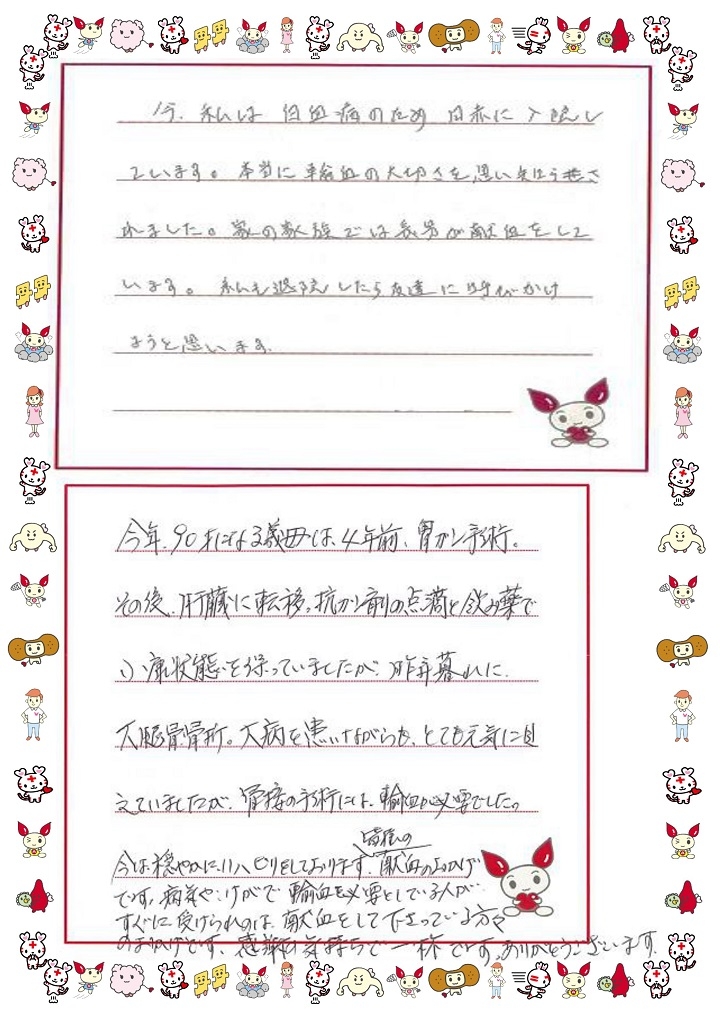 今、私は白血病のため日赤に入院し
ています。本当に輸血の大切さを思い知らせさ
れました。家の家族では長男が献血をして
います。私も退院したら友達に呼びかけ
ようと思います。
今年、90才になる義母は、4年前、胃ガン手術。
その後、肝臓に転移。抗ガン剤の点滴と飲み薬で
い病状態を保っていましたが、昨年暮れに、
大腿骨骨折。大病を患いながらも、とても元気に見
えていましたが、骨接の手術には、輸血が必要でした。
皆様の
今は穏やかにリハビリをしております。献血のおかげ
です。病気やけがで輸血を必要としている人が、
すぐに受けられるのは、献血をして下さっている方々
のおかげです。感謝の気持ちで一杯です。ありがとうございます。